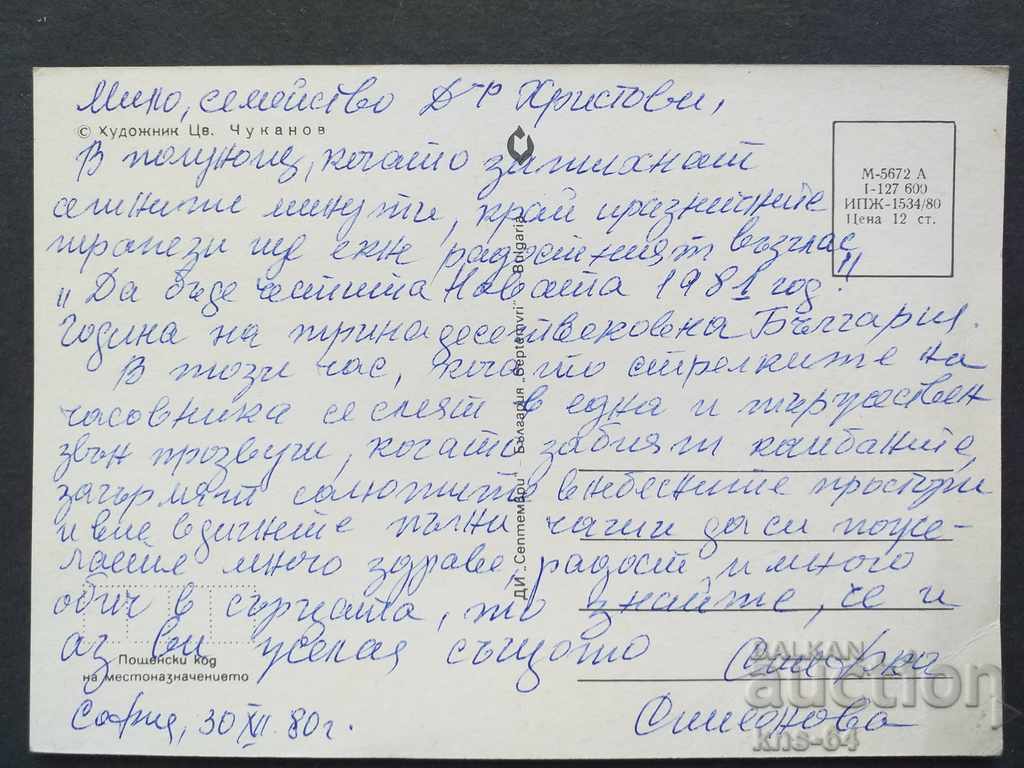 Мило, семейство Д-р Христови,
© Художник Цв. Чуканов
В полунощ, когато затихнат
сетните минути, край празничните
трапези ще екне радостният възглас
"Да бъде честита Новата 1981 год."
Година на тринадесетвековна България.
В този час, когато стрелките на
часовника се слеят в една и тържествен
звън прозвучи, когато забият камбаните,
загърмят салютите в небесните простори
и вие вдигнете пълни чаши да си поже-
лаете много здраве, радост и много
обич в сърцата, то знайте, че и
аз ви желая същото
Пощенски код
на местоназначението
София, 30 XII 80 г.
Симеонова
М-5672 А
I-127 600
ИПЖ-1534/80
Цена 12 ст.
ДИ „Септември" – България „Septemvri" – Bulgaria
BALKAN
auction
kns-64